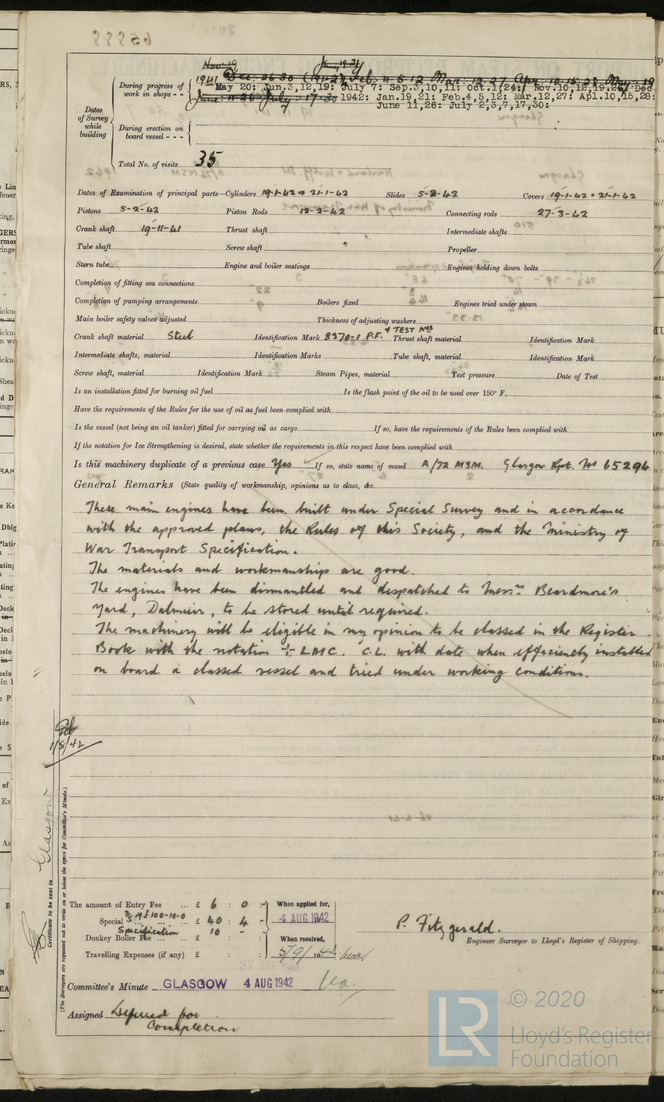 1941 May 20: Jun.3,12,19: July 7: Sep.3,10,11: Oct.1,24: Nov.10,12,19,26: Dec.
During progress of work in shops - - -
1942: Jan.19,21: Feb.4,5,12: Mar.12,27: Apl.10,15,28:
June 11,26: July 2,3,7,17,30:
Dates of Survey while building
During erection on board vessel - - -
Total No. of visits 35
Dates of Examination of principal parts—Cylinders 19-1-42 & 21-1-42 Slides 5-2-42 Covers 19-1-42 & 21-1-42
Pistons 5-2-42 Piston Rods 12-2-42 Connecting rods 27-3-42
Crank shaft 19-11-41 Thrust shaft Intermediate shafts
Tube shaft Screw shaft Propeller
Stern tube Engine and boiler seatings Engines holding down bolts
Completion of fitting sea connections
Completion of pumping arrangements Boilers fixed Engines tried under steam
Main boiler safety valves adjusted Thickness of adjusting washers
Crank shaft material Steel Identification Mark 8970-1 P.F. & TEST Nos Thrust shaft material Identification Mark
Intermediate shafts, material Identification Marks Tube shaft, material Identification Mark
Screw shaft, material Identification Mark Steam Pipes, material Test pressure Date of Test
Is an installation fitted for burning oil fuel Is the flash point of the oil to be used over 150° F.
Have the requirements of the Rules for the use of oil as fuel been complied with
Is the vessel (not being an oil tanker) fitted for carrying oil as cargo If so, have the requirements of the Rules been complied with
If the notation for Ice Strengthening is desired, state whether the requirements in this respect have been complied with
Is this machinery duplicate of a previous case Yes If so, state name of vessel A/72 MSM. Glasgow Rpt. No 65294
General Remarks (State quality of workmanship, opinions as to class, &c.
These main engines have been built under Special Survey and in accordance
with the approved plans, the Rules of this Society, and the Ministry of
War Transport Specification.
The materials and workmanship are good.
The engines have been dismantled and despatched to Messrs Beardmore's
Yard, Dalmuir, to be stored until required.
The machinery will be eligible in my opinion to be classed in the Register
Book with the notation + LMC. C.L. with date when efficiently installed
on board a classed vessel and tried under working conditions.
1/8/42
Glasgow
Certificate to be sent to
(The Surveyors are requested not to write on or below the space for Committee's Minute.)
The amount of Entry Fee ... £ 6 : 0 : - When applied for,
Special ... £ 40 : 4 - 4 AUG 1942
Specification 10 -
Donkey Boiler Fee ... £ : : When received,
Travelling Expenses (if any) £ : : 5/9/1942
P. Fitzgerald.
Engineer Surveyor to Lloyd's Register of Shipping.
Committee's Minute GLASGOW 4 AUG 1942
Assigned Deferred for
Completion
LR © 2020
Lloyd's Register
Foundation